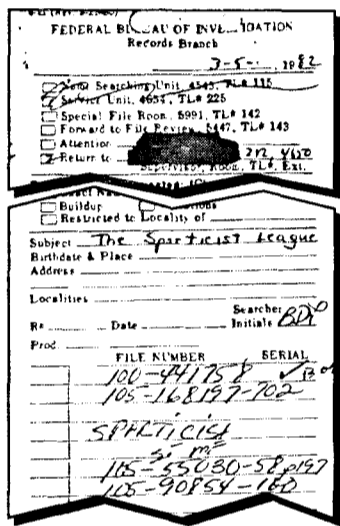 FEDERAL BUREAU OF INVESTIGATION
Records Branch
3-5- 1982
Name Searching Unit, 4543, TL# 115
Service Unit, 4654, TL# 225
Special File Room, 5991, TL# 142
Forward to File Review, 5447, TL# 143
Attention
Return to 4650
Supervisor, Room, TL#, Ext.
Buildup
Restricted to Locality of
Subject The Sparticist League
Birthdate & Place
Address
Localities
Searcher
R# Date Initials
Prod.
FILE NUMBER SERIAL
100-441758
105-168197-702
SPARTICIST
105-55030-58 p197
105-90854-160